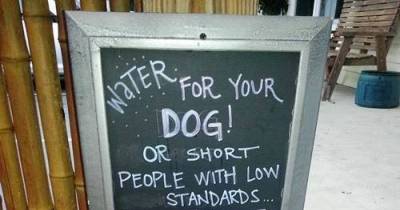 WaTER FOR YOUR
DOG!
OR SHORT
PEOPLE WITH LOW
STANDARDS...